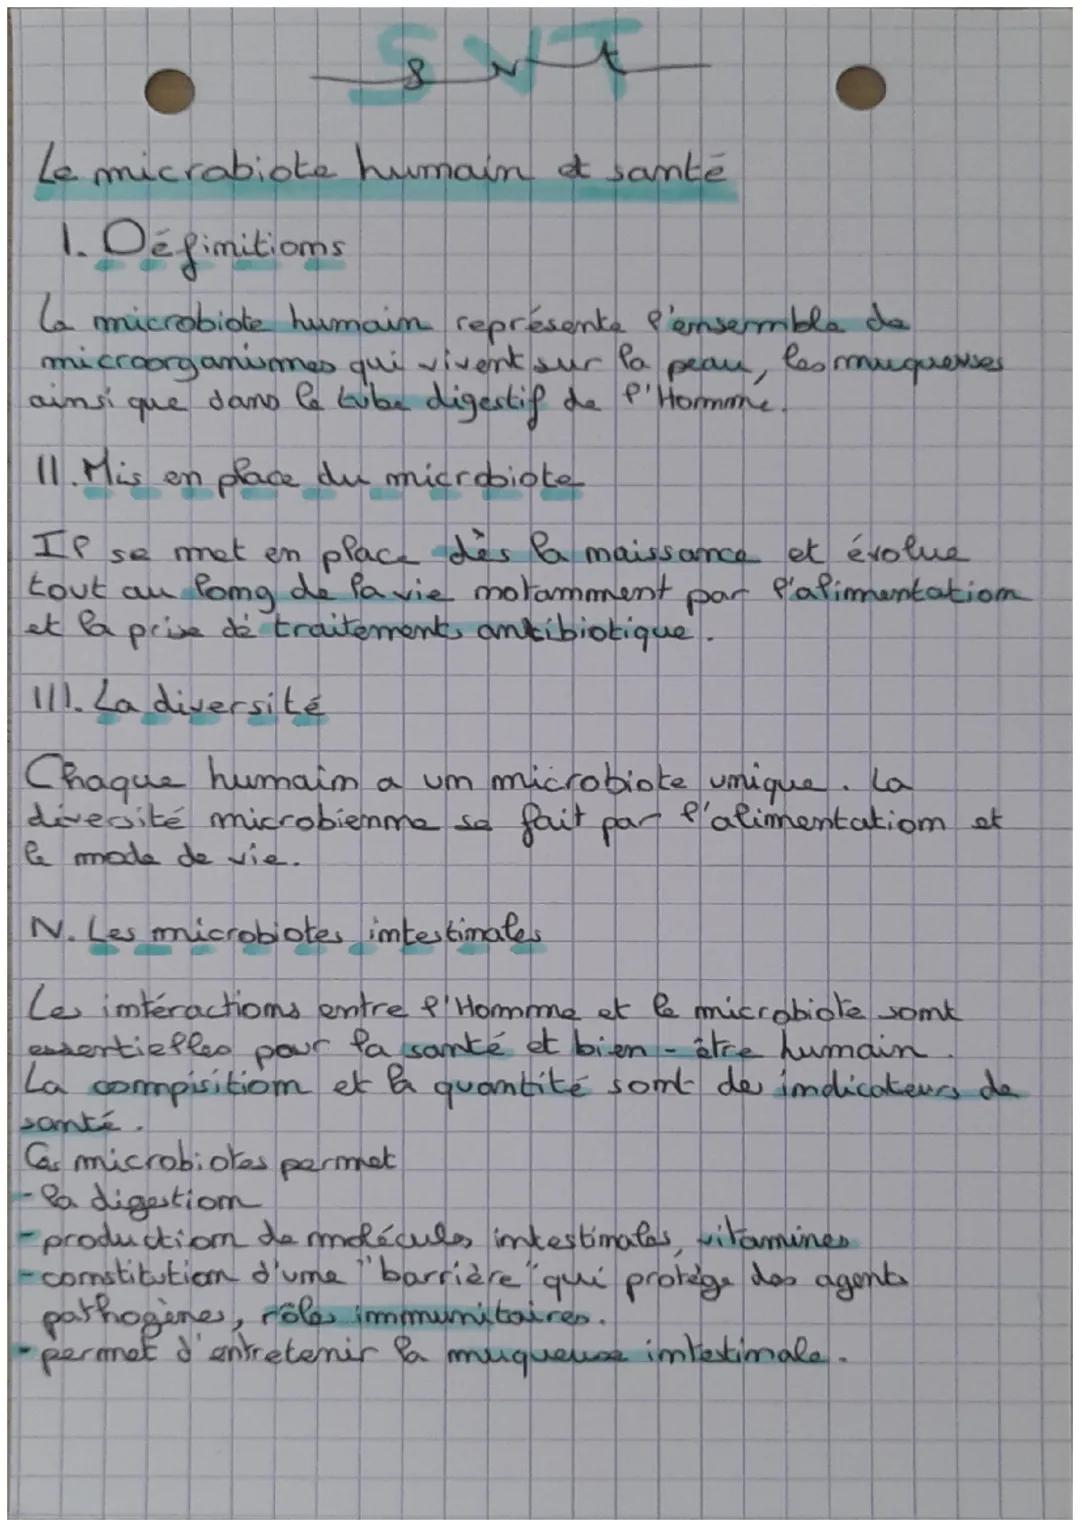 SVT
svt
Le microbiote humain et santé
I. Définitions
Le microbiote humain représente l'ensemble de
microorganismes qui vivent sur la peau, les muqueuses
ainsi que dans le tube digestif de l'Homme.
II. Mis en place du microbiote
Il se met en place dès la naissance et évolue
tout au long de la vie notamment par l'alimentation
et la prise de traitements antibiotique.
III. La diversité
Chaque humain a un microbiote unique. La
diversité microbienne se fait par l'alimentation et
le mode de vie.
IV. Les microbiotes intestinales
Les intéractions entre l'Homme et le microbiote sont
essentielles pour la santé et bien-être humain.
La compisition et la quantité sont des indicateurs de
santé.
Ces microbiotes permet
- la digestion
- production de molécules intestinales, vitamines
- constitution d'une "barrière" qui protège des agents
pathogènes, rôles immunitaires.
- permet d'entretenir la muqueuse intestinale.